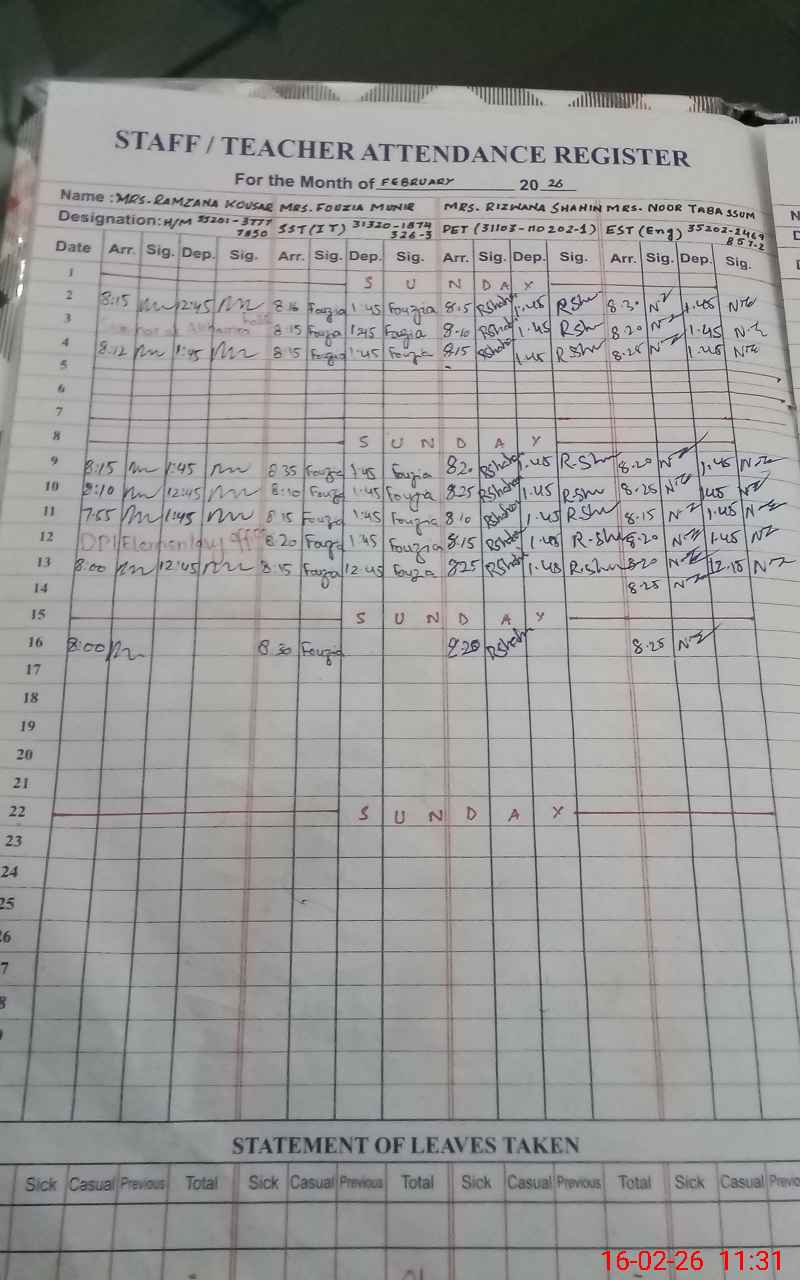 STAFF / TEACHER ATTENDANCE REGISTER
For the Month of FEBRUARY 20 26
Name : MRS. RAMZANA KOUSAR MRS. FOUZIA MUNIR MRS. RIZWANA SHAHIN MRS. NOOR TABASSUM
Designation: H/M 35201-3777 SST(IT) 31320-1874 PET (31103-110202-1) EST (Eng) 35202-2469
7850 326-3 857-2
Date Arr. Sig. Dep. Sig. Arr. Sig. Dep. Sig. Arr. Sig. Dep. Sig. Arr. Sig. Dep. Sig.
1 S U N D A Y
2 8:15 12:45 8 16 Fouzia 1:45 Fouzia 8.15 RShah 1.45 RSh 8.30 1.45
3 8 15 Fouzia 1:45 Fouzia 8.10 RShah 1.45 RSh 8.20 1.45
4 8:12 1:45 8 15 Fouzia 1:45 Fouzia 8.15 RShah 1.45 RSh 8.25 1.45
5
6
7
8 S U N D A Y
9 8:15 1:45 8 35 Fouzia 1:45 Fouzia 8.20 RShah 1.45 R.Sh 8.20 1.45
10 8:10 12:45 8:10 Fouzia 1:45 Fouzia 8.25 RShah 1.45 RSh 8.25 1.45
11 7:55 1:45 8 15 Fouzia 1:45 Fouzia 8.10 RShah 1.45 RSh 8.15 1.45
12 DPI Elementary office 8.20 Fouzia 1:45 Fouzia 8.15 RShah 1.45 R-Sh 8.20 1.45
13 8:00 12:45 8:15 Fouzia 12:45 Fouzia 8.25 RShah 1.45 R.Sh 8.20 12.15
14 8.25
15 S U N D A Y
16 8:00 8.30 Fouzia 8.20 RShah 8.25
17
18
19
20
21
22 S U N D A Y
23
24
25
STATEMENT OF LEAVES TAKEN
Sick Casual Previous Total Sick Casual Previous Total Sick Casual Previous Total Sick Casual
16-02-26 11:31